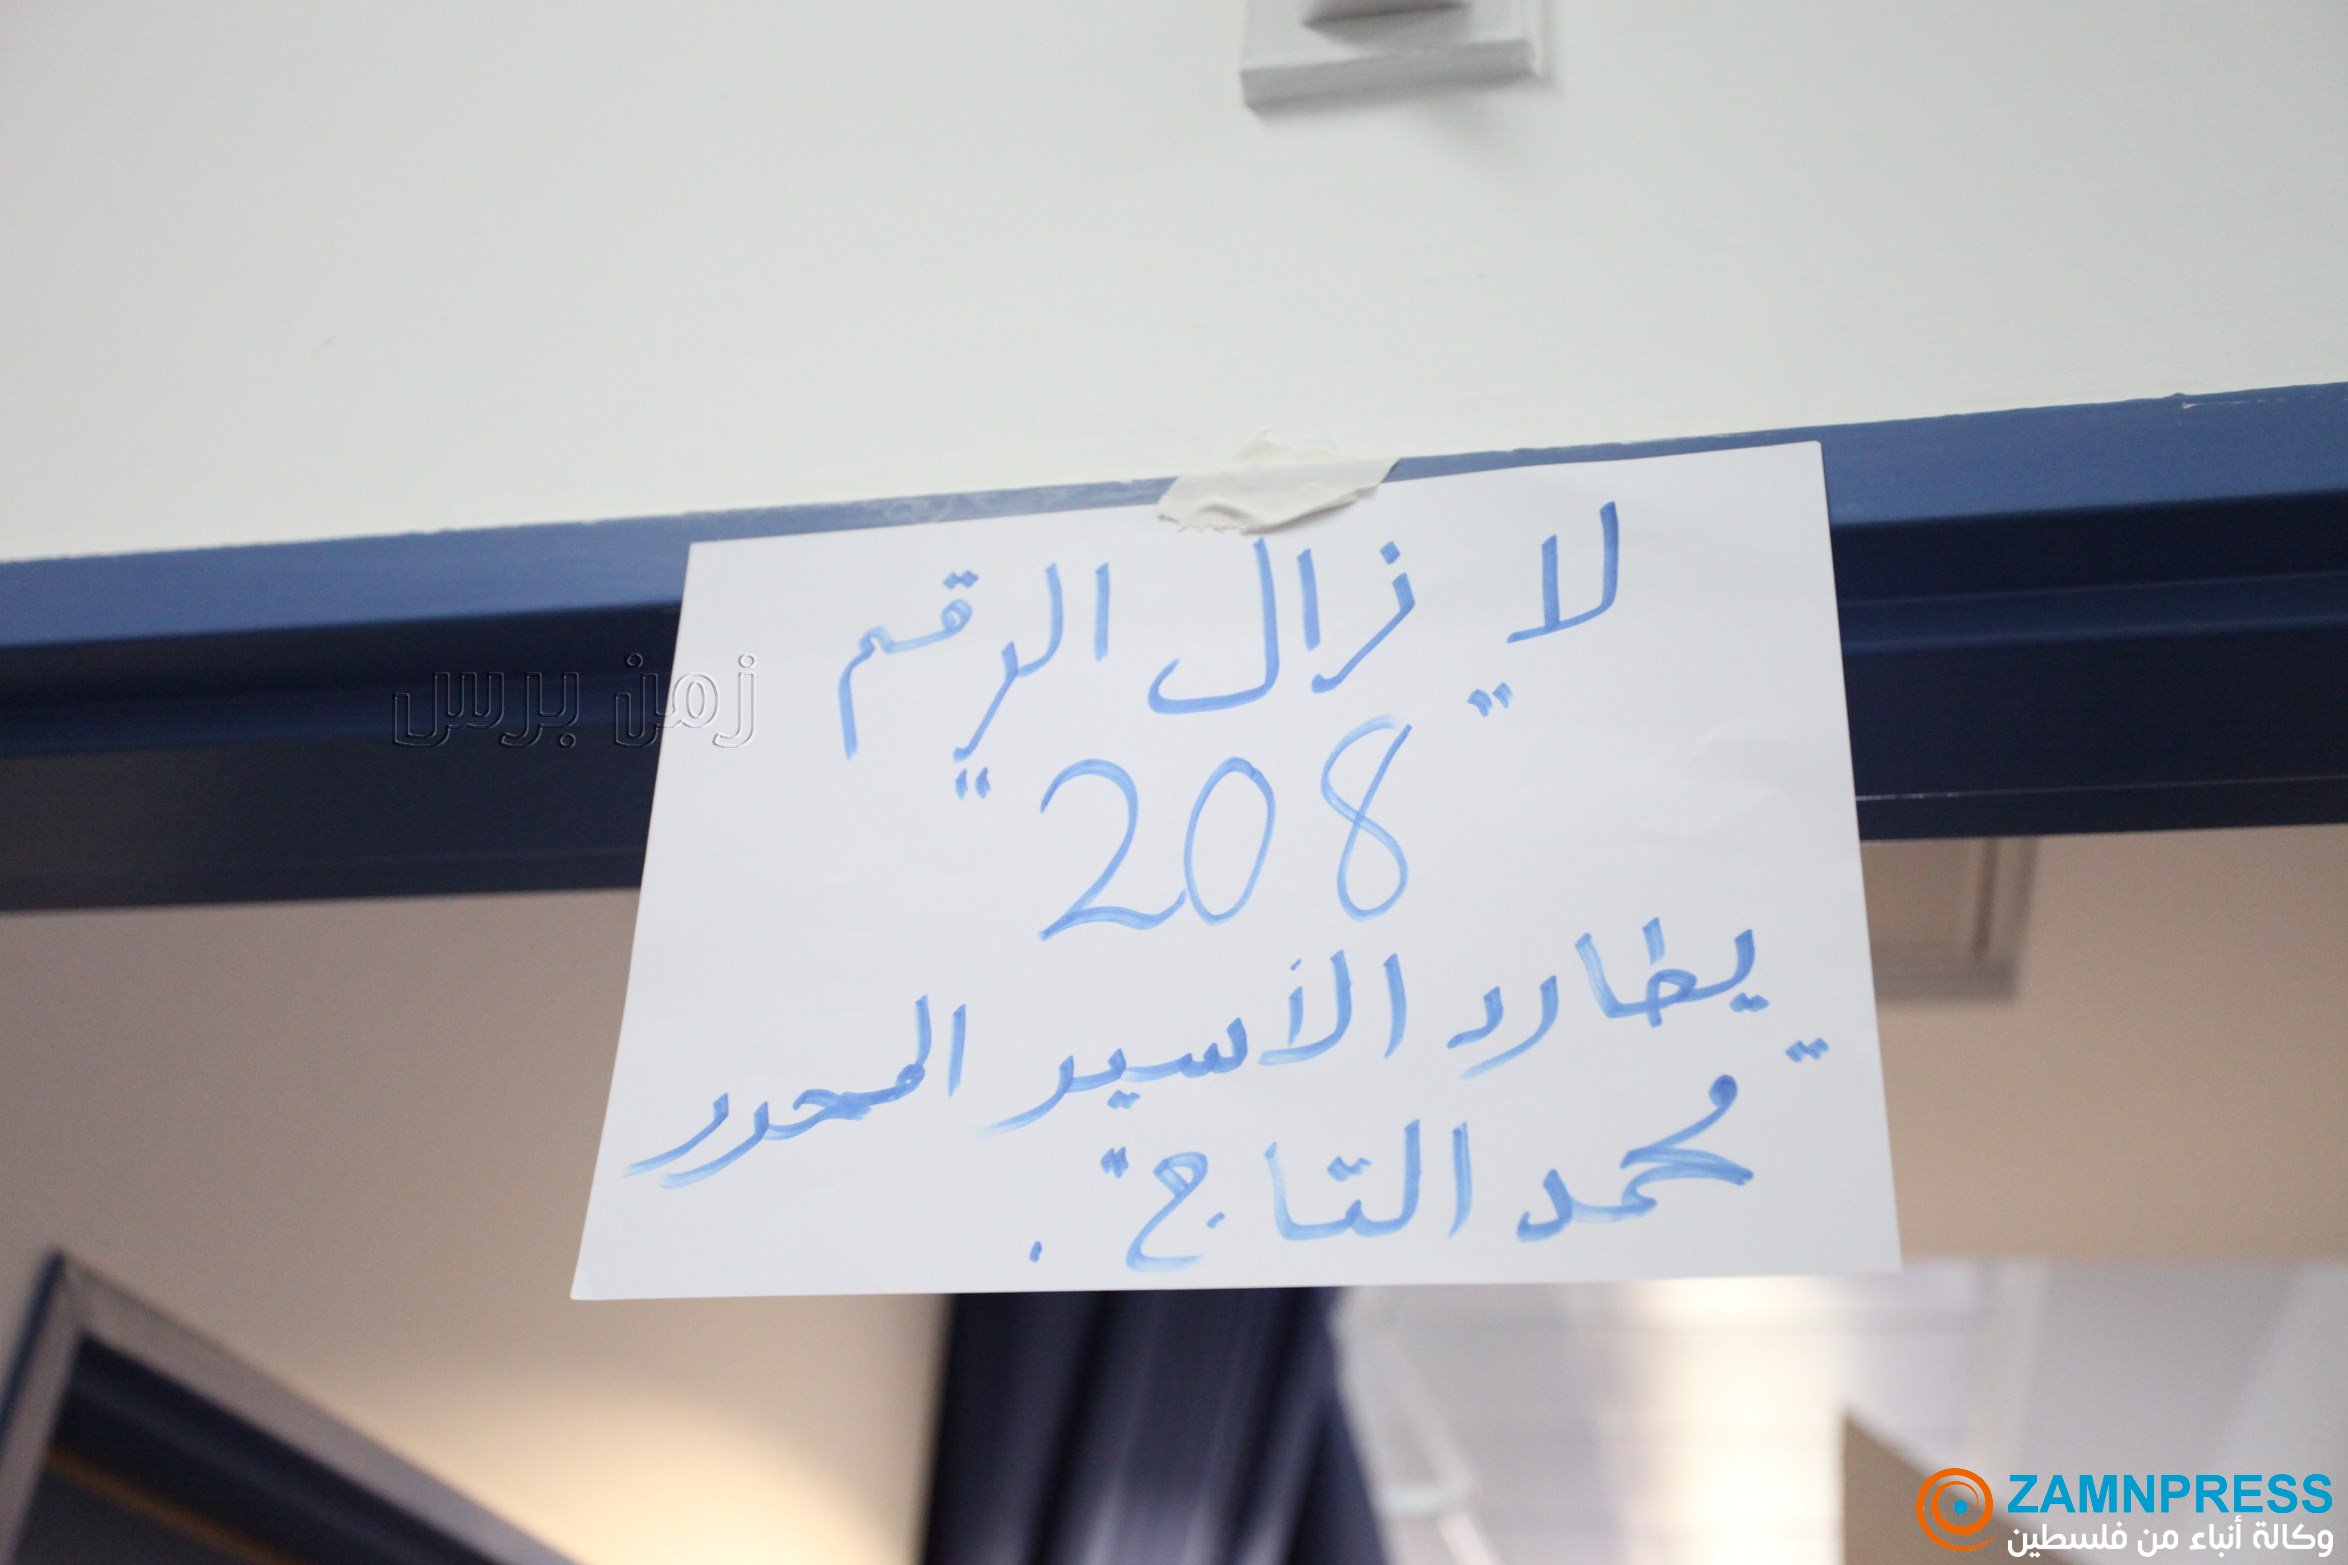 لا يزال الرقم
"208"
يطارد الأسير المحرر
"مُحمد التاج".
زمن برس
ZAMNPRESS
وكالة أنباء من فلسطين